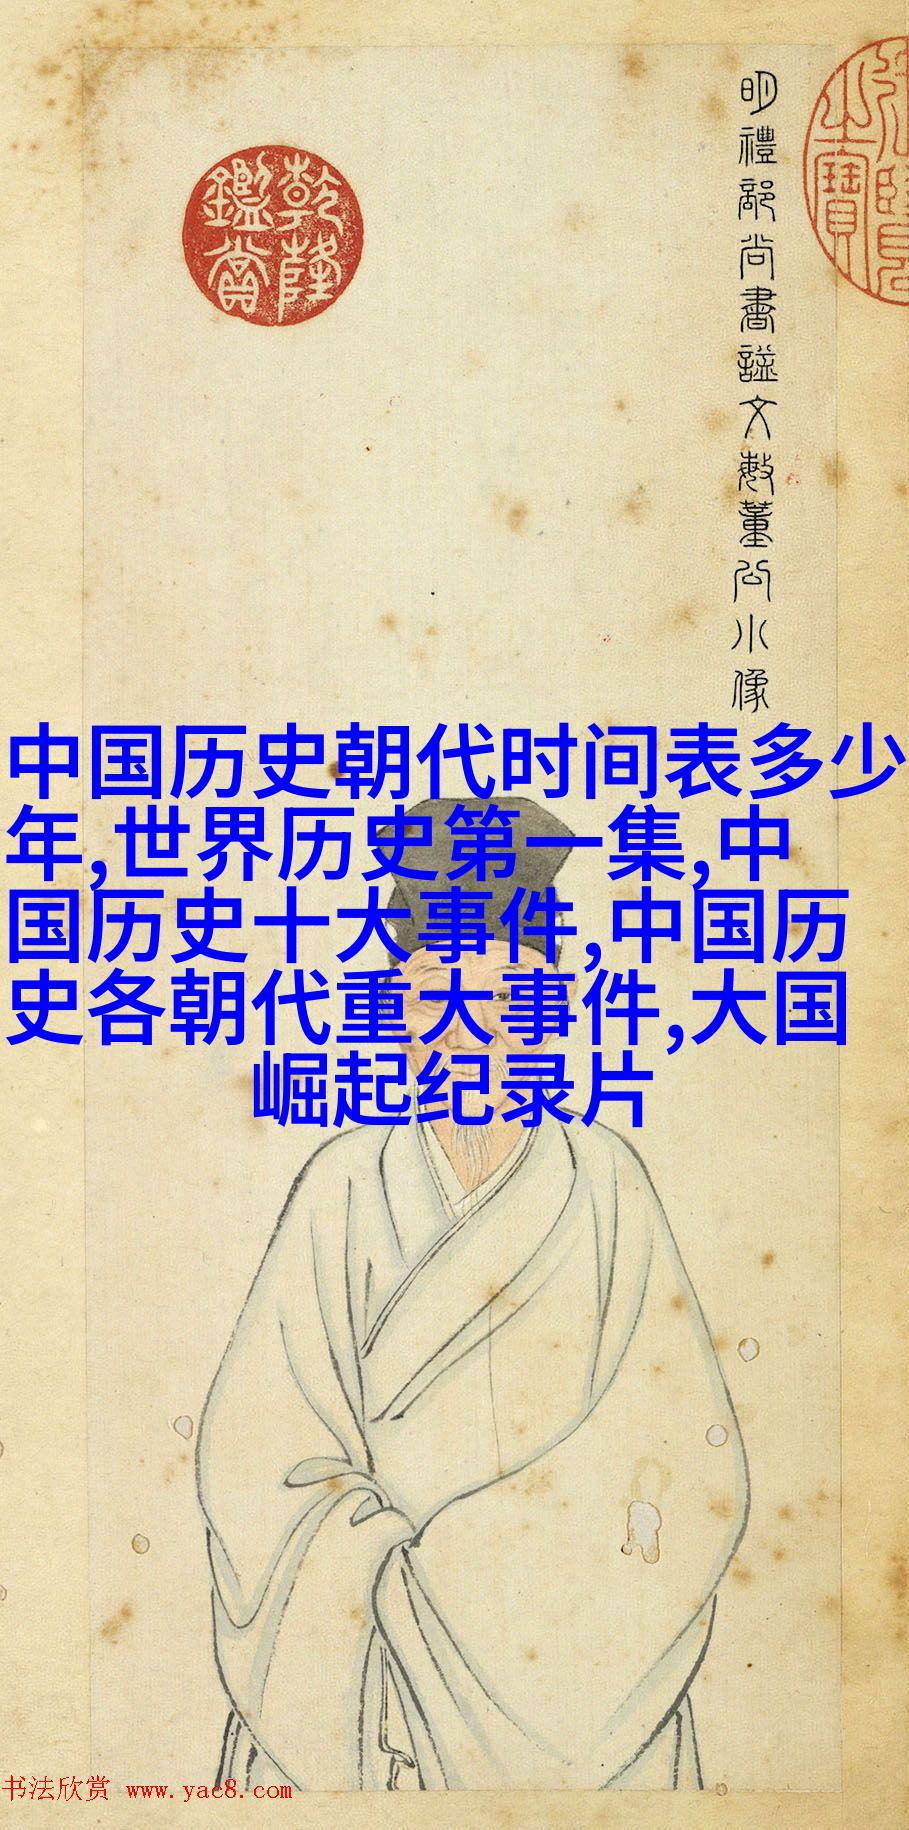 明禮部尚書謚文敏董公小像
乾隆
鑑賞
中国历史朝代时间表多少
年,世界历史第一集,中
国历史十大事件,中国历
史各朝代重大事件,大国
崛起纪录片
书法欣赏 www.yac8.com